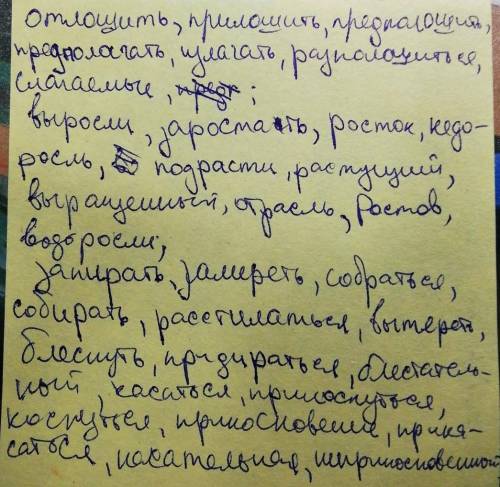 отлощить, прилошить, предпалощить,
предполагать, излагать, разпалошиться,
слагаемые, ;
выросли, зароста ть, росток, недо-
росль, подрасти, растущий,
выращенный, отрасль, Ростов,
водоросли;
запирать, замереть, собраться,
собирать, расстилаться, вытереть,
блеснуть, придираться, блестатель-
ный, касаться, прикоснуться,
коснуться, прикосновение, прика-
саться, касательная, неприкосновенный